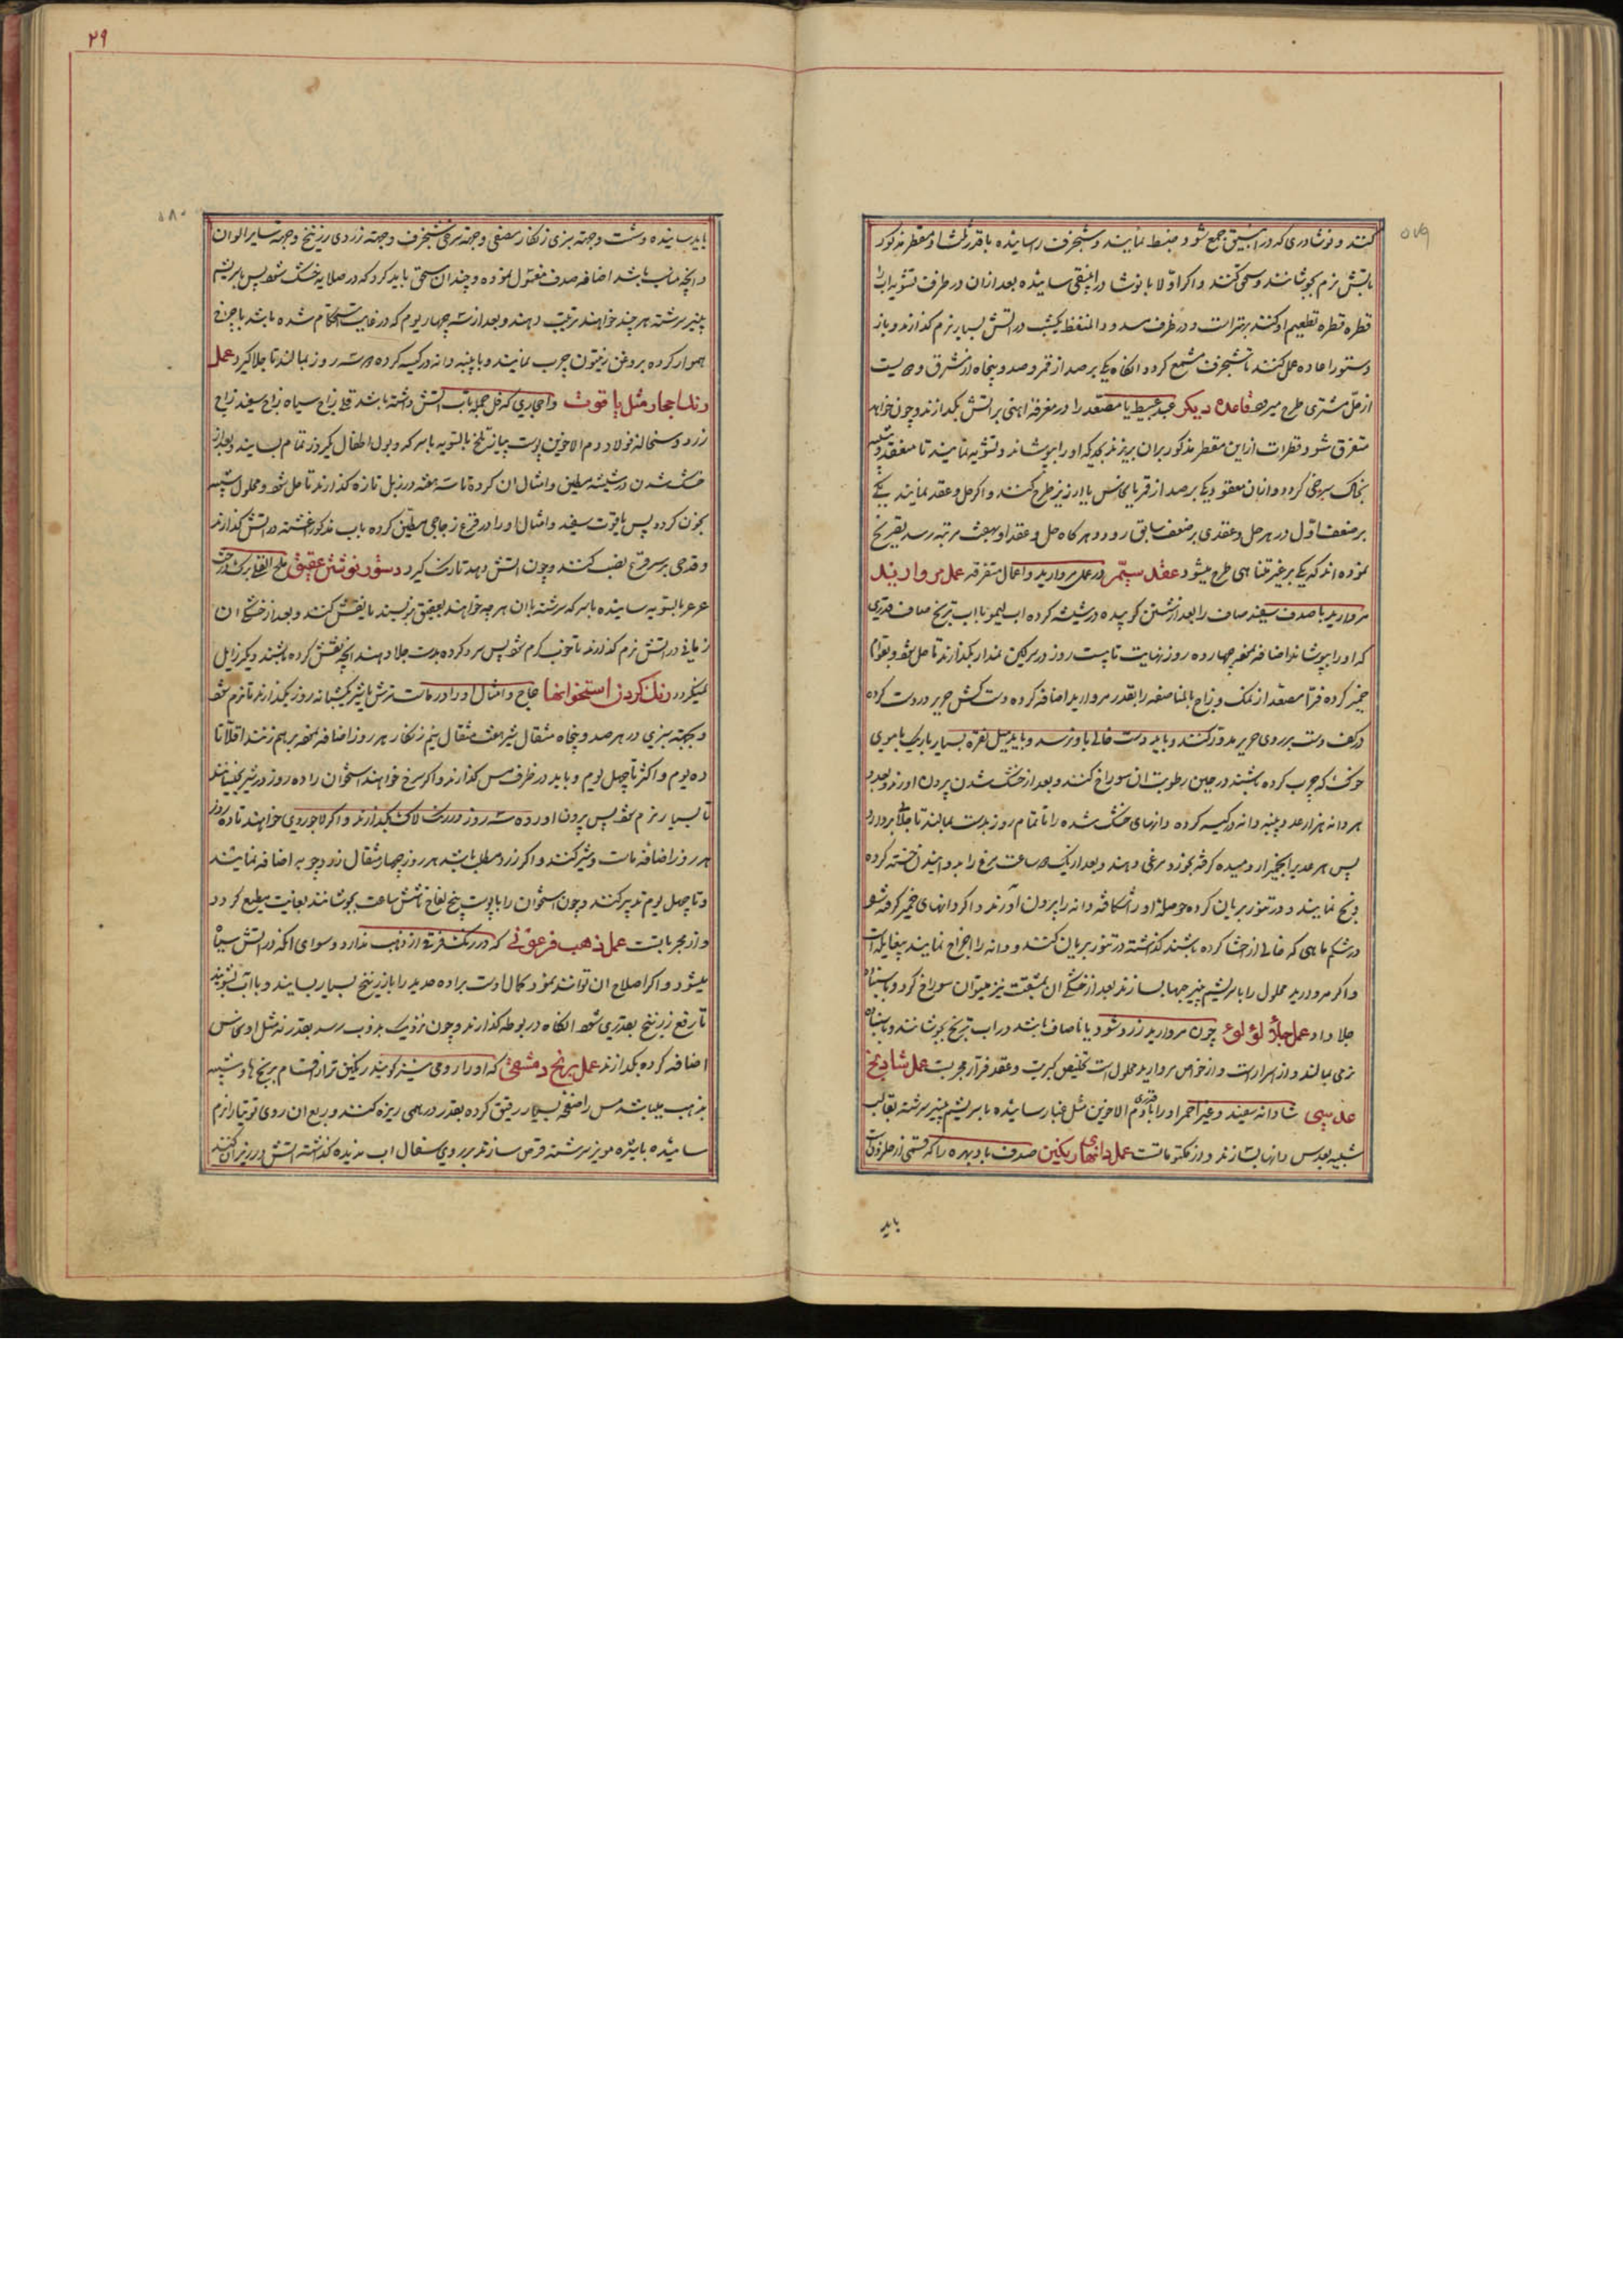 ۵۷۹
کنند و نوشادری که در انبیق جمع شود ضبط نمایند و شنجرف رسانیده باقدر کشا و مقطر مذکور
باتش نرم بجوشانند و سحق کنند و اکر اولا با نوشادر انبیقی سائیده بعد ازان در ظرف تشویه اب را
قطره قطره تطعیم او کنند بهتر است و در ظرف مسدود المنفذ یکشب در اتش بسیار نرم کذارند و باز
دستور اعاده عمل کنند تا شنجرف مشمع کردد انکاه یکی بر صد از قمر و صد و پنجاه از مشرق و دویست
از حل مشتری طرح میرود قاعده دیکر عبد عبیط یا مصعد را در مغرفه اهنی بر اتش بکدازند و چون خواهد
متفرق شود قطرات از این مقطر مذکور بران بریزند بحدیکه او را بپوشاند و تشویه نمایند تا منعقد و شبیه
بخاک سرخی کردد و از ان معقود یکی بر صد از قمر یا نحاس یا ارزیز طرح کنند و اکر حل و عقد نمایند یکی
بر ضعف اول در هر حل و عقدی بر ضعف سابق رود و هر کاه حل و عقد او بهفت مرتبه رسد تصریح
نموده اند که یکی بر غیر متناهی طرح میشود عقد سیم در عمل مروارید و اعمال متفرقه عمل مروارید
مروارید یا صدف سفید صاف را بعد از شستن کوبیده در شیشه کرده اب لیمو یا اب ترنج صاف قدری
که او را بپوشاند اضافه نموده چهارده روز نهایت تا بیست روز در سرکین نمدار بکذارند تا حل شود و بقوام
خمیر کرده فرار مصعد از نمک و زاج بالمناصفه را بقدر مروارید اضافه کرده دست کش حریر در دست کرده
در کف دست بر روی حریر مدور کنند و باید دست خالی باو نرسد و باید میل نقره بسیار باریک یا موی
خوک که چرب کرده باشند در حین رطوبت ان سوراخ کنند و بعد از خشک شدن بیرون اورند و بعدد
هر دانه هزار عدد پنبه دانه در کیسه کرده دانهای خشک شده را تا تمام روز بدست بمالند تا جلای بردارد
پس هر عدد را بخمیر ارد میده کرفته بخورد مرغی دهند و بعد از یک دو ساعت مرغ را بدوانیدن خسته کرده
ذبح نمایند و در تنور بریان کرده حوصله او را شکافته دانه را بیرون آورند و اکر دانهای خمیر کرفته شود
در شکم ماهی که خالی از احشا کرده باشند کذاشته در تنور بریان کنند و دانه را اخراج نمایند بیغایله است
و اکر مروارید محلول را با سریشم پنیر حبها بسازند بعد از خشکی ان بمشقت نیز میتوان سوراخ کرد و باسنباده
جلا داد عمل جلاء لؤلؤ چون مروارید زرد شود یا ناصاف باشد در اب ترنج بجوشانند و باسنباده
نرمی بمالند و از اسرار است و از خواص مروارید محلول است تخلیص کبریت و عقد فرار مجربست عمل شادنج
عدسی شادانه سفید و غیر احمر او را با قدری دم الاخوین مثل غبار سائیده با سریشم پنیر سرشته بقالب
شبیه بعدس دانها بسازند و از مکتوماتست عمل دانهای رنکین صدف بادبهره را که قسمی از حلزونات
باید
۲۹
۵۸۰
باید سائیده و شست و جهته سبزی زنکار مصفی و جهته سرخی شنجرف و جهته زردی زرنیخ و جهته سایر الوان
و انچه مناسب باشد اضافه صدف مغسول نموده و چندان سحق باید کرد که در صلایه خشک شود پس با سریشم
پنیر سرشته هر چند خواهند ترتیب دهند و بعد از سه چهار یوم که در غایت استحکام شده باشد با چرخ
هموار کرده بروغن زیتون چرب نمایند و با پنبه دانه در کیسه کرده دو سه روز بمالند تا جلا کیرد عمل
رنک احجار مثل یاقوت و احجاری که تحمل تاب اتش داشته باشد قلی زاج سیاه زاج سفید زاج
زرد و سحاله فولاد و دم الاخوین پوست پیاز تلخ بالسویه با سرکه و بول اطفال یکروز تمام بسایند و بعد از
خشک شدن در شیشه مطین و امثال ان کرده تا سه هفته در زبل تازه کذارند تا حل شود و محلول شبیه
بخون کردد پس یاقوت سفید و امثال او را در قرع زجاجی مطین کرده باب مذکور اغشته در اتش کذارند
و قدحی بر سر قرع نصب کنند و چون اتش دهد تا رنک کیرد دستور نوشتن عقیق ملح القلی برک درخت
عرعر بالسویه سائیده با سرکه سرشته با ان هر چه خواهند بعقیق بنویسند یا نقش کنند و بعد از خشکی ان
زمانی در اتش نرم کذارند تا خوب کرم شود پس سرد کرده بدست جلا دهند انچه نقش کرده باشند دیکر زایل
نمیکردد رنک کردن استخوانها عاج و امثال او را در ماست ترش یا شیر یکشبانه روز بکذارند تا نرم شود
و بجهته سبزی در هر صد و پنجاه مثقال شیر هفت مثقال نیم زنکار هر روز اضافه نموده بر هم زنند اقلا تا
ده یوم و اکثر تا چهل یوم و باید در ظرف مس کذارند و اکر سرخ خواهند استخوان را ده روز در شیر بخیسانند
تا بسیار نرم شود پس بیرون اورده سه روز در رنک لاک بکذارند و اکر لاجوردی خواهند تا ده روز
هر روز اضافه ماست و شیر کنند و اکر زرد مطلب باشد هر روز چهار مثقال زردچوبه اضافه نمایند
و تا چهل یوم تدبیر کنند و چون استخوان را با پوست بیخ لفاح تا شش ساعت بجوشانند بغایت مطیع کردد
و از مجرباتست عمل ذهب فرعونی که در رنک فرقی از ذهب ندارد و سوای انکه در اتش سیاه
میشود و اکر اصلاح ان توانند نمود کمال اوست براده حدید را با زرنیخ بسیار بسایند و با آب بشویند
تا رفع زرنیخ بقدری شود انکاه در بوطه کذارند و چون نزدیک بذوب رسد بقدر نه مثل او مس
اضافه کرده بکدازند عمل برنج دمشقی که او را رومی نیز کویند رنکین تر از اقسام برنج ها و شبیه
بذهب میباشد مس را صفحه بسیار رقیق کرده بقدر درهمی ریزه کنند و ربع ان روی توتیا را نرم
سائیده با شیره مویز سرشته قرص سازند بر روی سفال اب ندیده کذاشته اتش در زیر ان کنند